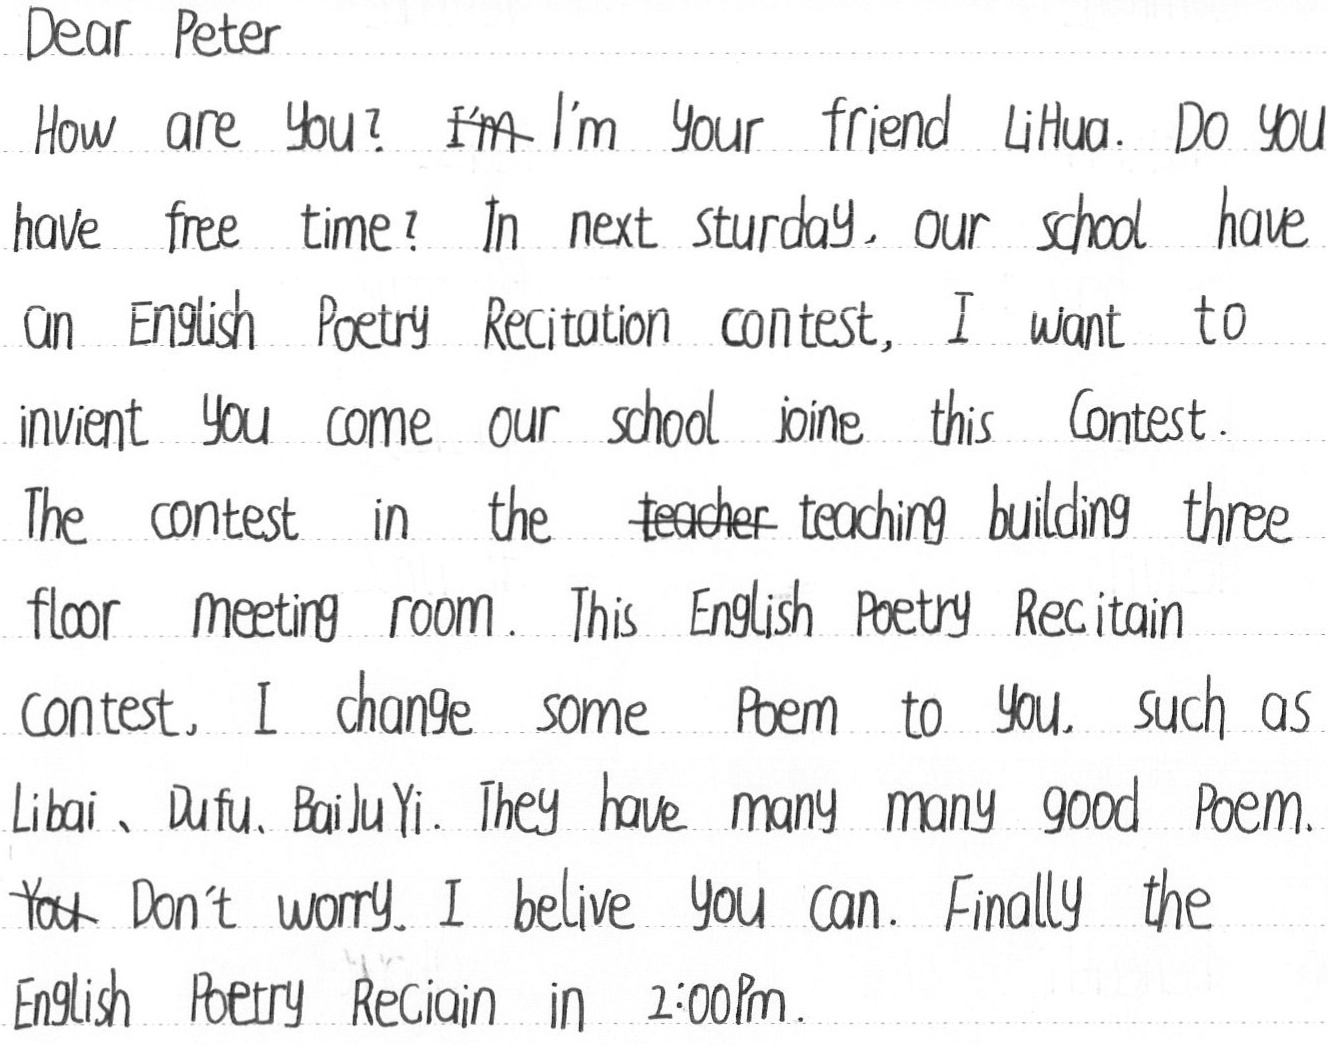 Dear Peter
How are you? I'm I'm your friend LiHua. Do you
have free time? In next sturday, our school have
an English Poetry Recitation contest, I want to
invient you come our school joine this Contest.
The contest in the teacher teaching building three
floor meeting room. This English Poetry Recitain
contest, I change some Poem to you, such as
Libai、Dufu、BaiJuYi. They have many many good Poem.
You Don't worry. I belive you can. Finally the
English Poetry Reciain in 2:00Pm.